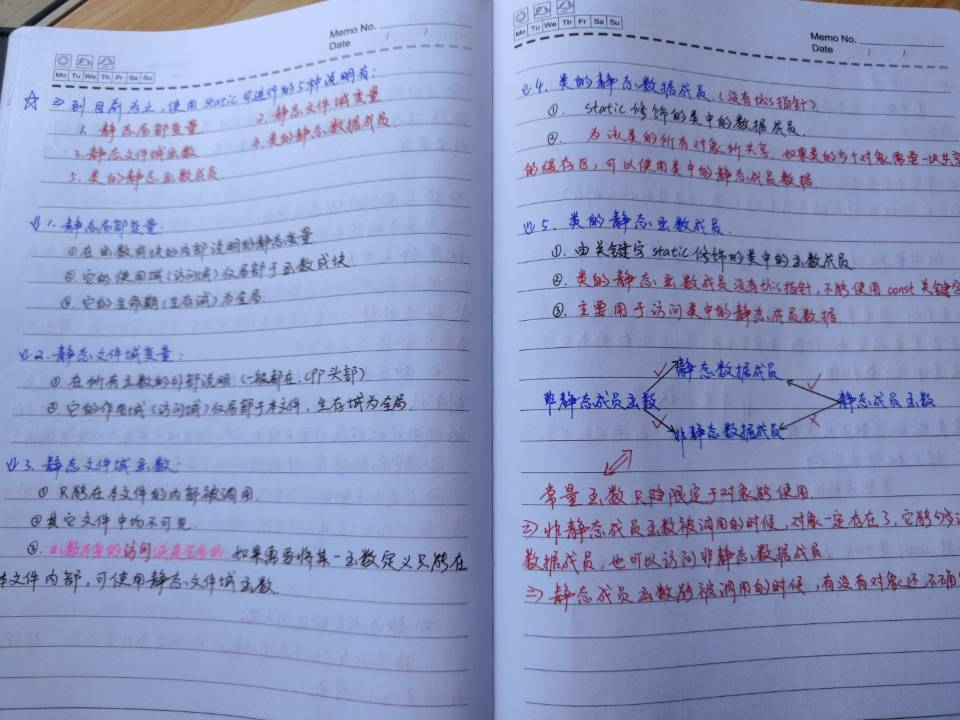 Memo No.
Date / /
Mo Tu We Th Fr Sa Su
☆ ⇒ 到目前为止,使用static可进行的5种说明有:
1. 静态局部变量 2. 静态文件域变量
3. 静态文件域函数 4. 类的静态数据成员
5. 类的静态函数成员
1. 静态局部变量:
①在函数或块的内部说明的静态变量.
②. 它的使用域(访问域)仅局部于函数或块.
③. 它的生命期(生存域)为全局.
2. 静态文件域变量:
①. 在所有函数的外部说明 (一般都在.cpp头部)
②. 它的作用域(访问域)仅局部于本文件, 生存域为全局.
3. 静态文件域函数:
① 只能在本文件的内部被调用.
②其它文件中均不可见.
③. 函数本身的访问 如果需要将某一函数定义只能在
本文件内部, 可使用静态文件域函数.
Memo No.
Date / /
Mo Tu We Th Fr Sa Su
4. 类的静态数据成员. (没有this指针)
①. static修饰的类中的数据成员.
②. 为该类的所有对象所共享. 如果类的多个对象需要一块共享
的缓存区, 可以使用类中的静态成员数据.
5. 类的静态函数成员.
①. 由关键字static修饰的类中的函数成员.
②. 类的静态函数成员没有this指针, 不能使用const关键字
③. 主要用于访问类中的静态成员数据.
静态数据成员
非静态成员函数 静态成员函数
非静态数据成员
常量函数只限定于对象能使用.
⇒ 非静态成员函数被调用的时候, 对象一定存在了, 它能够
数据成员, 也可以访问非静态数据成员
⇒ 静态成员函数能被调用的时候, 有没有对象还不确